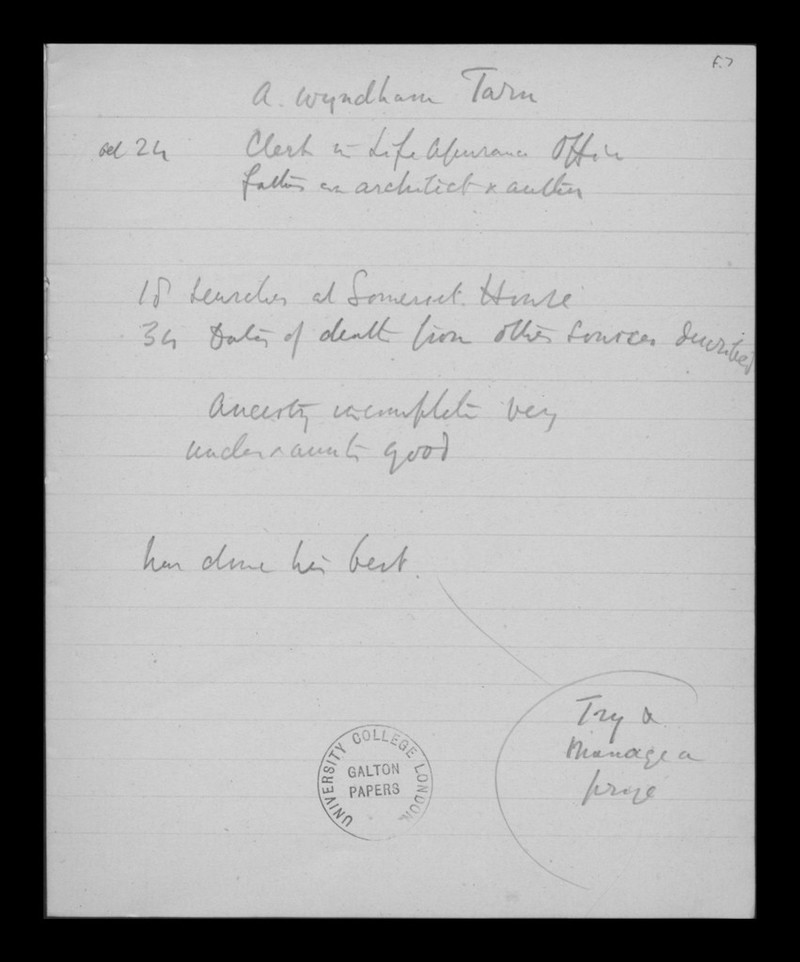 f.7
A. Wyndham Tarn
aet 24 Clerk in Life Assurance Office
father an architect & author
18 searches at Somerset House
34 Dates of death from other sources described
Ancestry incomplete very
uncles & aunts good
has done his best.
Try &
Manage a
prize
UNIVERSITY COLLEGE LONDON
GALTON
PAPERS